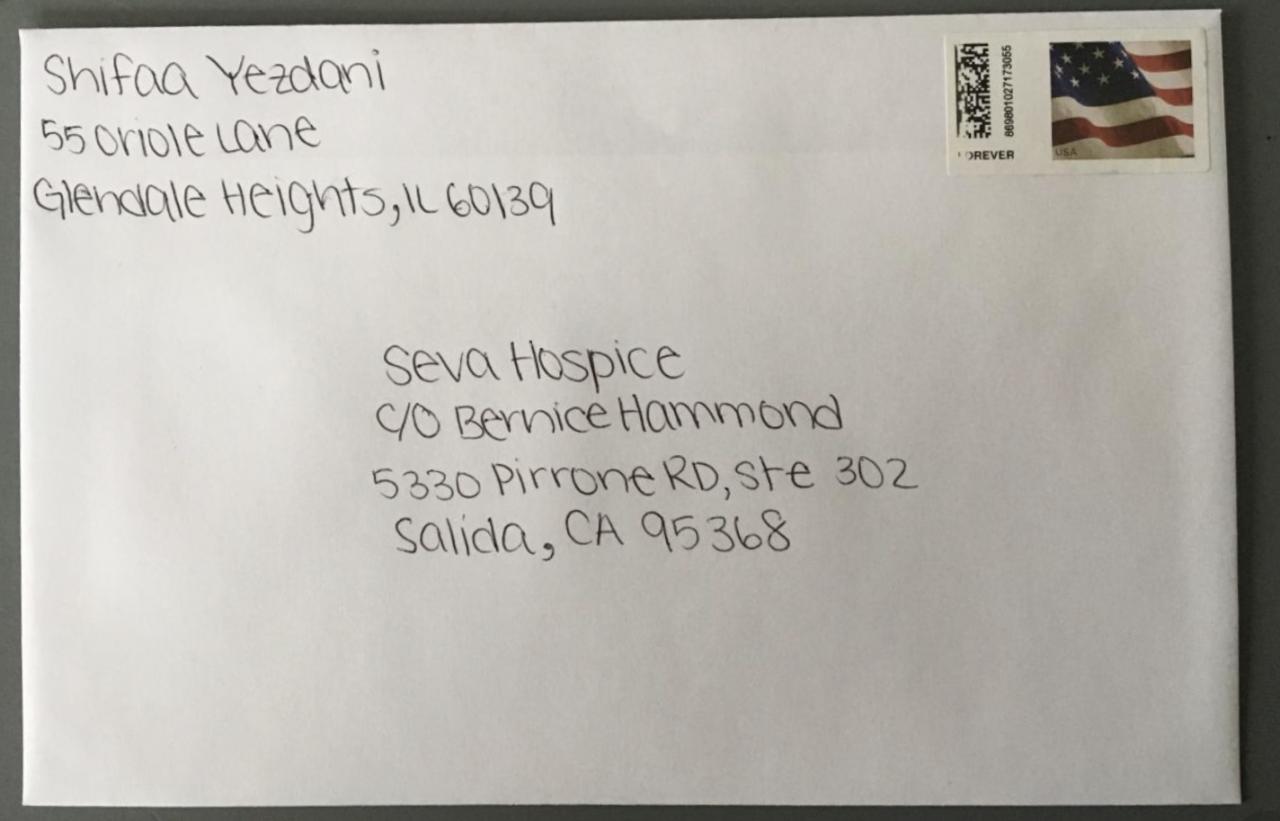 Shifaa Yezdani
55 Oriole Lane
Glendale Heights, IL 60139
869801027173055
FOREVER
USA
Seva Hospice
C/O Bernice Hammond
5330 Pirrone RD, Ste 302
Salida, CA 95368